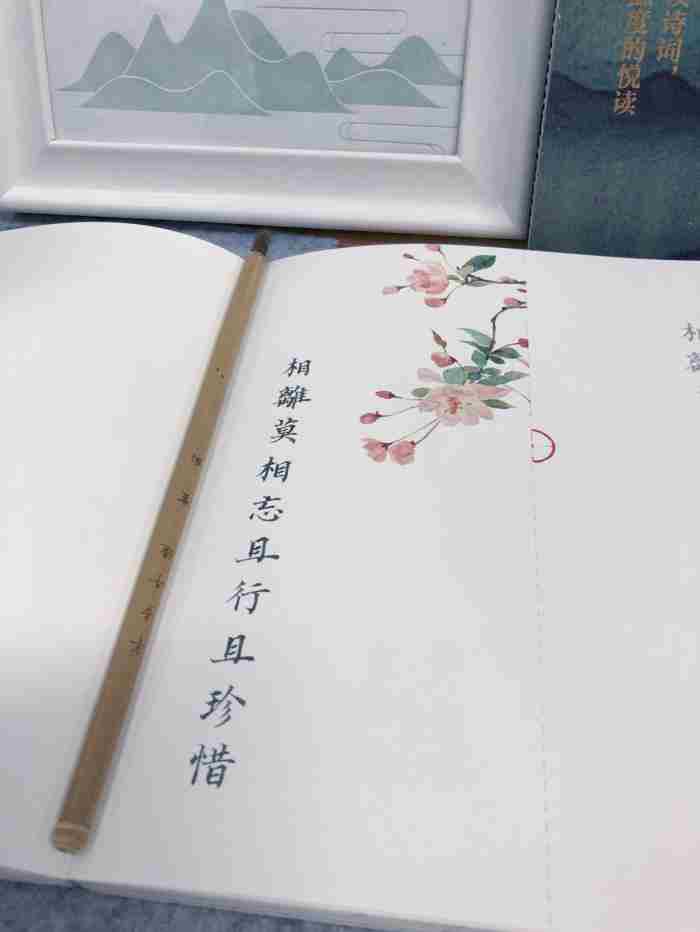 诗词，
度的悦读
相離莫相忘且行且珍惜